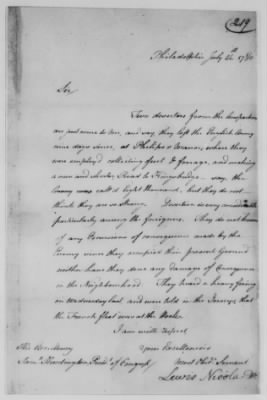 219
Philadelphia July 24th 1780
Sir
Two deserters from the
are just come to me, and say they left the English Army
nine days since, at Philips's Manor, where they
were employ'd collecting fuel & forrage, and making
a new and shorter Road to Kingsbridge. say, the
Enemy was call'd eight thousand, but they do not
think they are so strong. Desertion is very
particularly among the foreigners. They do not know
of any Excursions of consequence made by the
Enemy since they occupied their present Ground
neither have they done any damage of Consequence
in the Neighbourhood. They heard a heavy firing
on Wednesday last and were told in the Jerseys that
the French fleet was at the Hook.
I am with respect
His Excellency Your Excellencies
Saml Huntington Presidt of Congress most Obedt Servant
Lewis Nicola